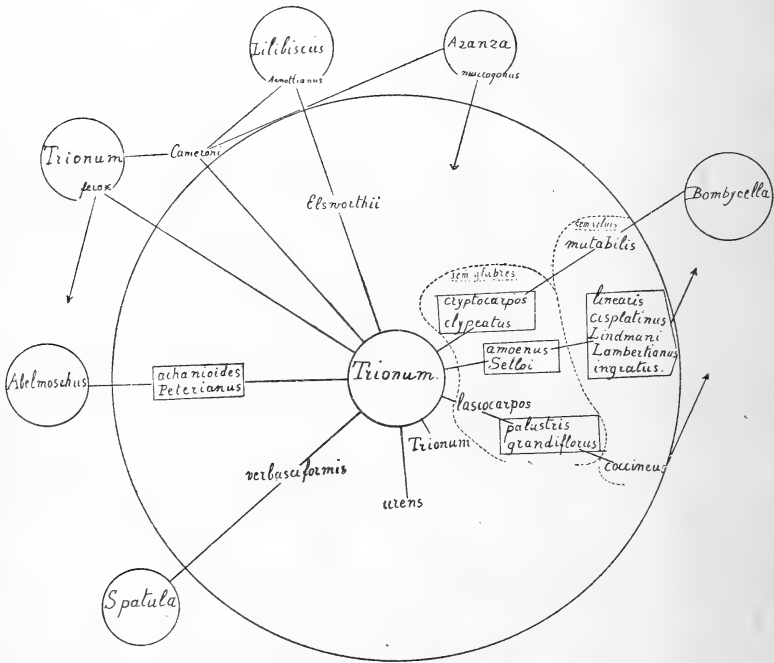 Lilibiscus
Arnottianus
Azanza
Trionum
ferox
Cameroni
Elsworthii
Bombycella
mutabilis
sem glabres
cryptocarpos
clypeatus
linearis
cisplatinus
Lindmani
Lambertianus
ingratus.
amoenus
Selloi
Trionum.
Abelmoschus
achanioides
Peterianus
lasiocarpos
palustris
grandiflorus
Trionum
coccineus
verbasciformis
urens
Spatula